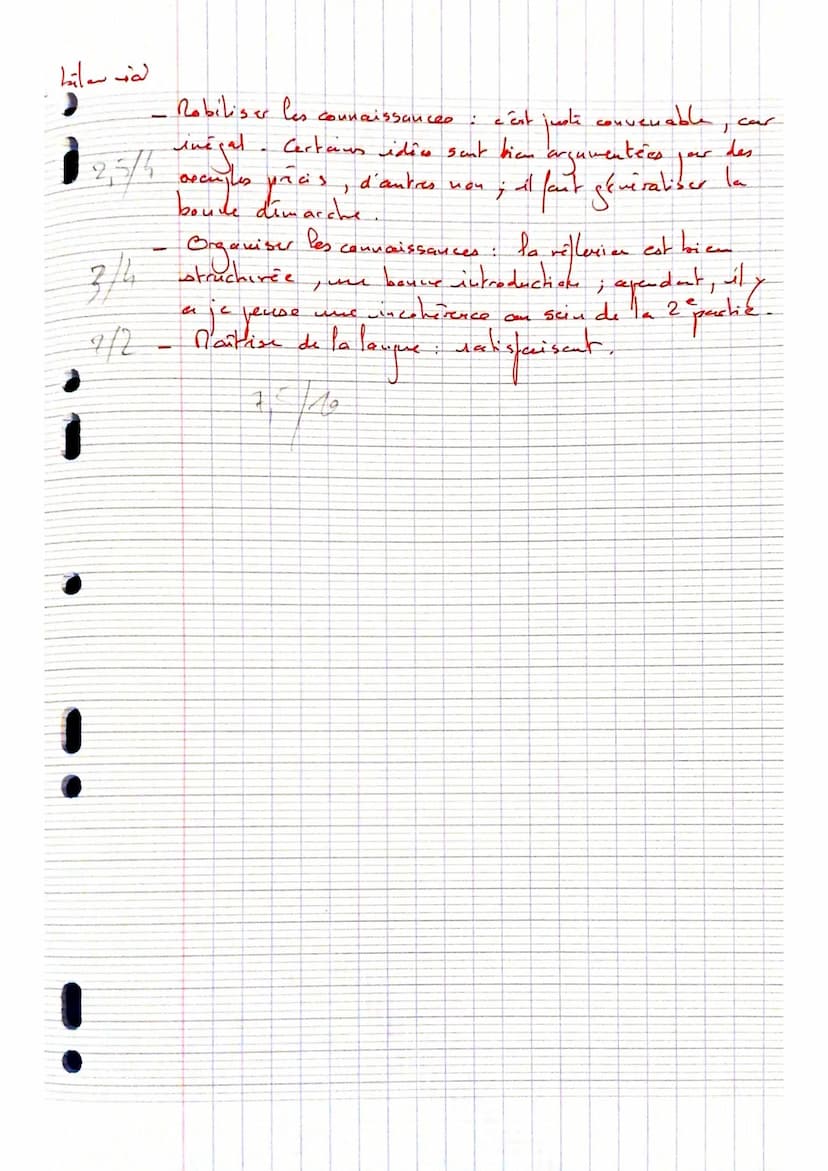 bilan
- Mobiliser les connaissances : c'est juste convenable, car
inégal. Certaines idées sont bien argumentées par des
2,5/4
exemples précis, d'autres non ; il faut généraliser la
bonne démarche.
- Organiser les connaissances : la réflexion est bien
3/4
structurée, une bonne introduction ; cependant, il y
a je pense une incohérence au sein de la 2e partie.
2/2 - Maîtrise de la langue : satisfaisant.
7,5/10